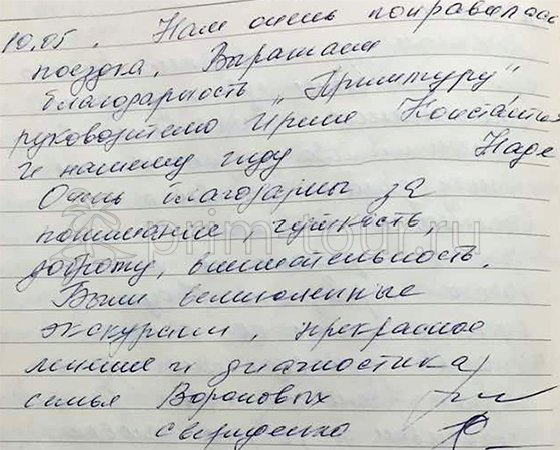 10.05. Нам очень понравилась
поездка. Выражаем
благодарность "Примтуру"
руководителю Ирине Констант
и нашему гиду Наде
Очень благодарны за
понимание, чуткость,
доброту, внимательность.
Были великолепные
экскурсии, прекрасное
лечение и диагностика
семья Вороновых
Свириденко
prim-tour.ru